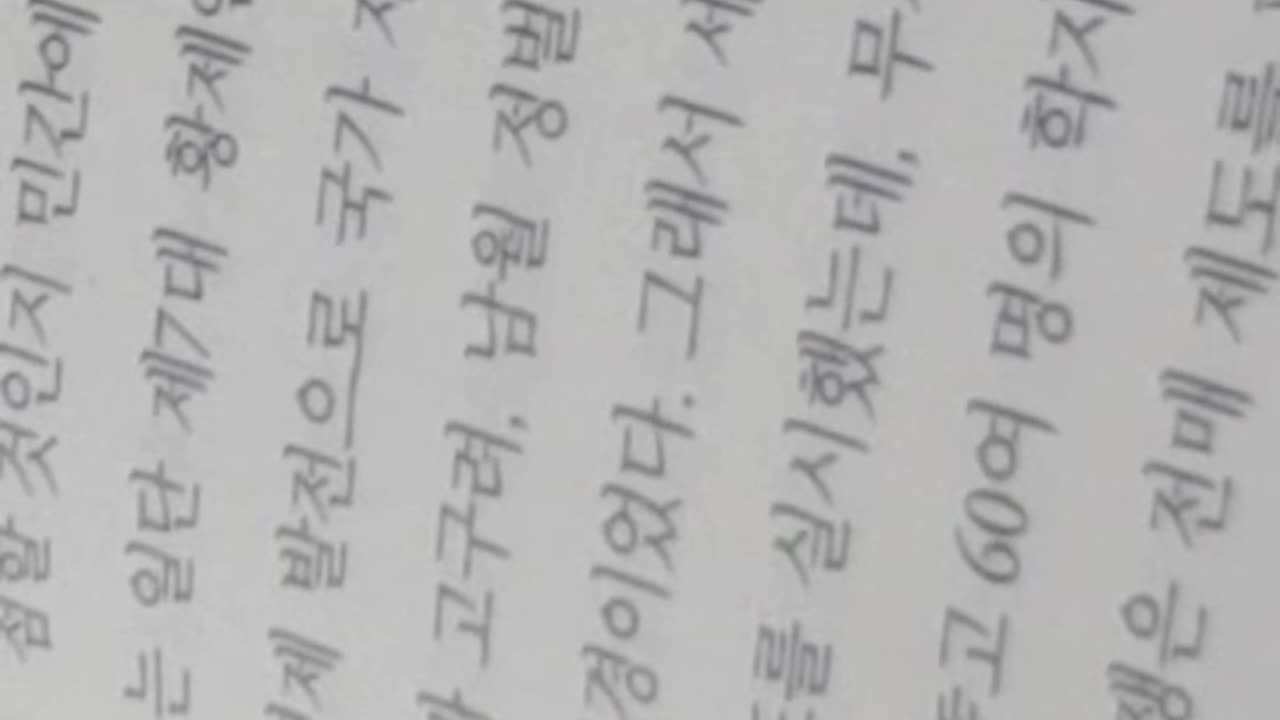 점할 것인지 민간에
는 일단 제7대 황제인
제 발전으로 국가
고구려, 남월 정벌
경이었다. 그래서
를 실시했는데, 무
고 60여 명의 학자
생은 전매 제도를